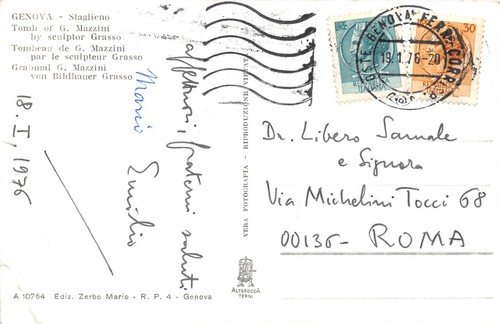 GENOVA - Staglieno
Tomb of G. Mazzini
by sculptor Grasso
Tombeau de G. Mazzini
par le sculpteur Grasso
Grabmal G. Mazzini
von Bildhauer Grasso
18. I, 1976
affettuosi, fraterni saluti
Mario
Emilio
VERA FOTOGRAFIA - RIPRODUZIONE VIETATA
GENOVA FERR. CORR.
19.1.76-20
30
Dr. Libero Samale
e Signora
Via Michelini Tocci 68
00136- ROMA
ALTEROCCA
TERNI
A 10764 Ediz. Zerbo Mario - R. P. 4 - Genova